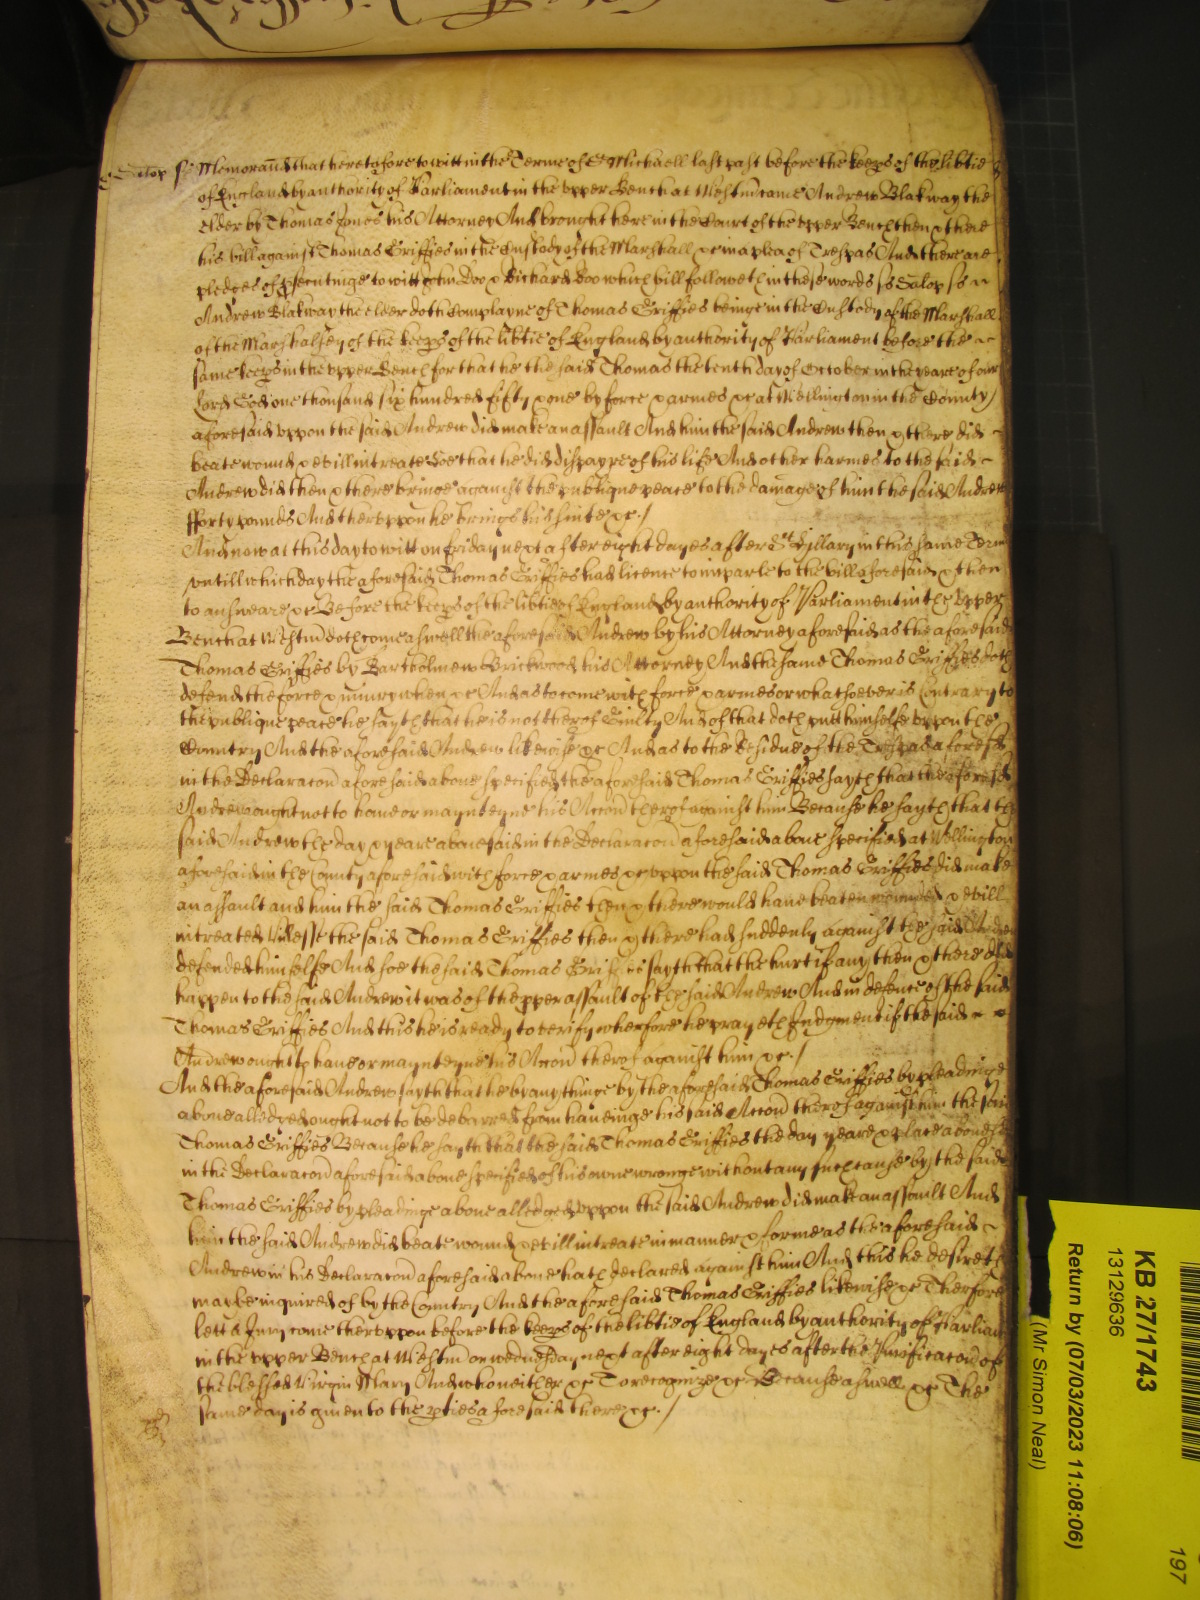 Salop ss Memorand that heretofore to witt in the Terme of St Michaell last past before the keeps of the libtie
of England by authority of Parliament in the upper Bench at Westm came Andrew Blakway the
elder by Thomas Jones his Attorney And brought here in the Court of the upper Bench then & there
his bill against Thomas Griffies in the Custody of the Marshall &c in a plea of Trespas And there are
pledges of psecutinge to witt John Doo & Richard Roo which bill followeth in these words ss Salop ss
Andrew Blakway the elder doth Complayne of Thomas Griffies beinge in the Custody of the Marshall
of the Marshalsey of the keeps of the libtie of England by authority of Parliament before the
same keeps in the upper Bench for that he the said Thomas the tenth day of October in the yeare of our
Lord God one thousand six hundred fifty & one by force & armes &c at Wellington in the County
aforesaid uppon the said Andrew did make an assault And him the said Andrew then & there did
beate wound & evill intreate Soe that he did dispayre of his life And other harmes to the said
Andrew did then & there bringe against the publique peace to the damage of him the said Andrew
fforty pounds And theruppon he brings his suite &c./
And now at this day to witt on Friday next after eight dayes after St Hillary in this same Term
untill which day the aforesaid Thomas Griffies had licence to imparle to the bill aforesaid & then
to answeare &c Before the keeps of the libtie of England by authority of Parliament in the upper
Bench at Westm doth come aswell the aforesaid Andrew by his Attorney aforesaid as the aforesaid
Thomas Griffies by Bartholmew Brickwood his Attorney And the same Thomas Griffies doth
defend the force & iniury when &c And as to come with force & armes or whatsoever is Contrary to
the publique peace he sayth that he is not therof Guilty And of that doth putt himselfe uppon the
Country And the aforesaid Andrew likewise &c And as to the Residue of the Trespas aforesd
in the Declaracon aforesaid above specified the aforesaid Thomas Griffies sayth that the aforesd
Andrew ought not to have or maynteyne his Accon therof against him Because he sayth that the
said Andrew the day & yeare abovesaid in the Declaracon aforesaid above specified at Wellington
aforesaid in the County aforesaid with force & armes &c uppon the said Thomas Griffies did make
an assault and him the said Thomas Griffies then & there would have beaten wounded & evill
intreated Unlesse the said Thomas Griffies then & there had suddenly against the said Andrew
defended himselfe And soe the said Thomas Griffies sayth that the hurt if any then & there did
happen to the said Andrew it was of the pper assault of the said Andrew And in defence of the said
Thomas Griffies And this he is ready to verify wherfore he prayeth Judgment if the said
Andrew ought to have or maynteyne his Accon therof against him &c./
And the aforesaid Andrew sayth that he by any thinge by the aforesaid Thomas Griffies by pleadinge
above alledged ought not to be debarred from haveinge his said Accon therof against him the said
Thomas Griffies Because he sayth that the said Thomas Griffies the day yeare & place abovesd
in the Declaracon aforesaid above specified of his owne wronge without any such cause by the said
Thomas Griffies by pleadinge above alledged uppon the said Andrew did make an assault And
him the said Andrew did beate wound & evill intreate in manner & forme as the aforesaid
Andrew in his Declaracon aforesaid above hath declared against him And this he desireth
may be inquired of by the Country And the aforesaid Thomas Griffies likewise &c Therfore
lett a Jury come theruppon before the keeps of the libtie of England by authority of Parliam
in the upper Bench at Westm on wednesday next after eight dayes after the Purificacon of
the blessed Virgin Mary And who neither &c To recognize &c Because aswell &c The
same day is given to the pties aforesaid there &c./
KB 27/1743
13129636
Return by (07/03/2023 11:08:06)
(Mr Simon Neal)
197